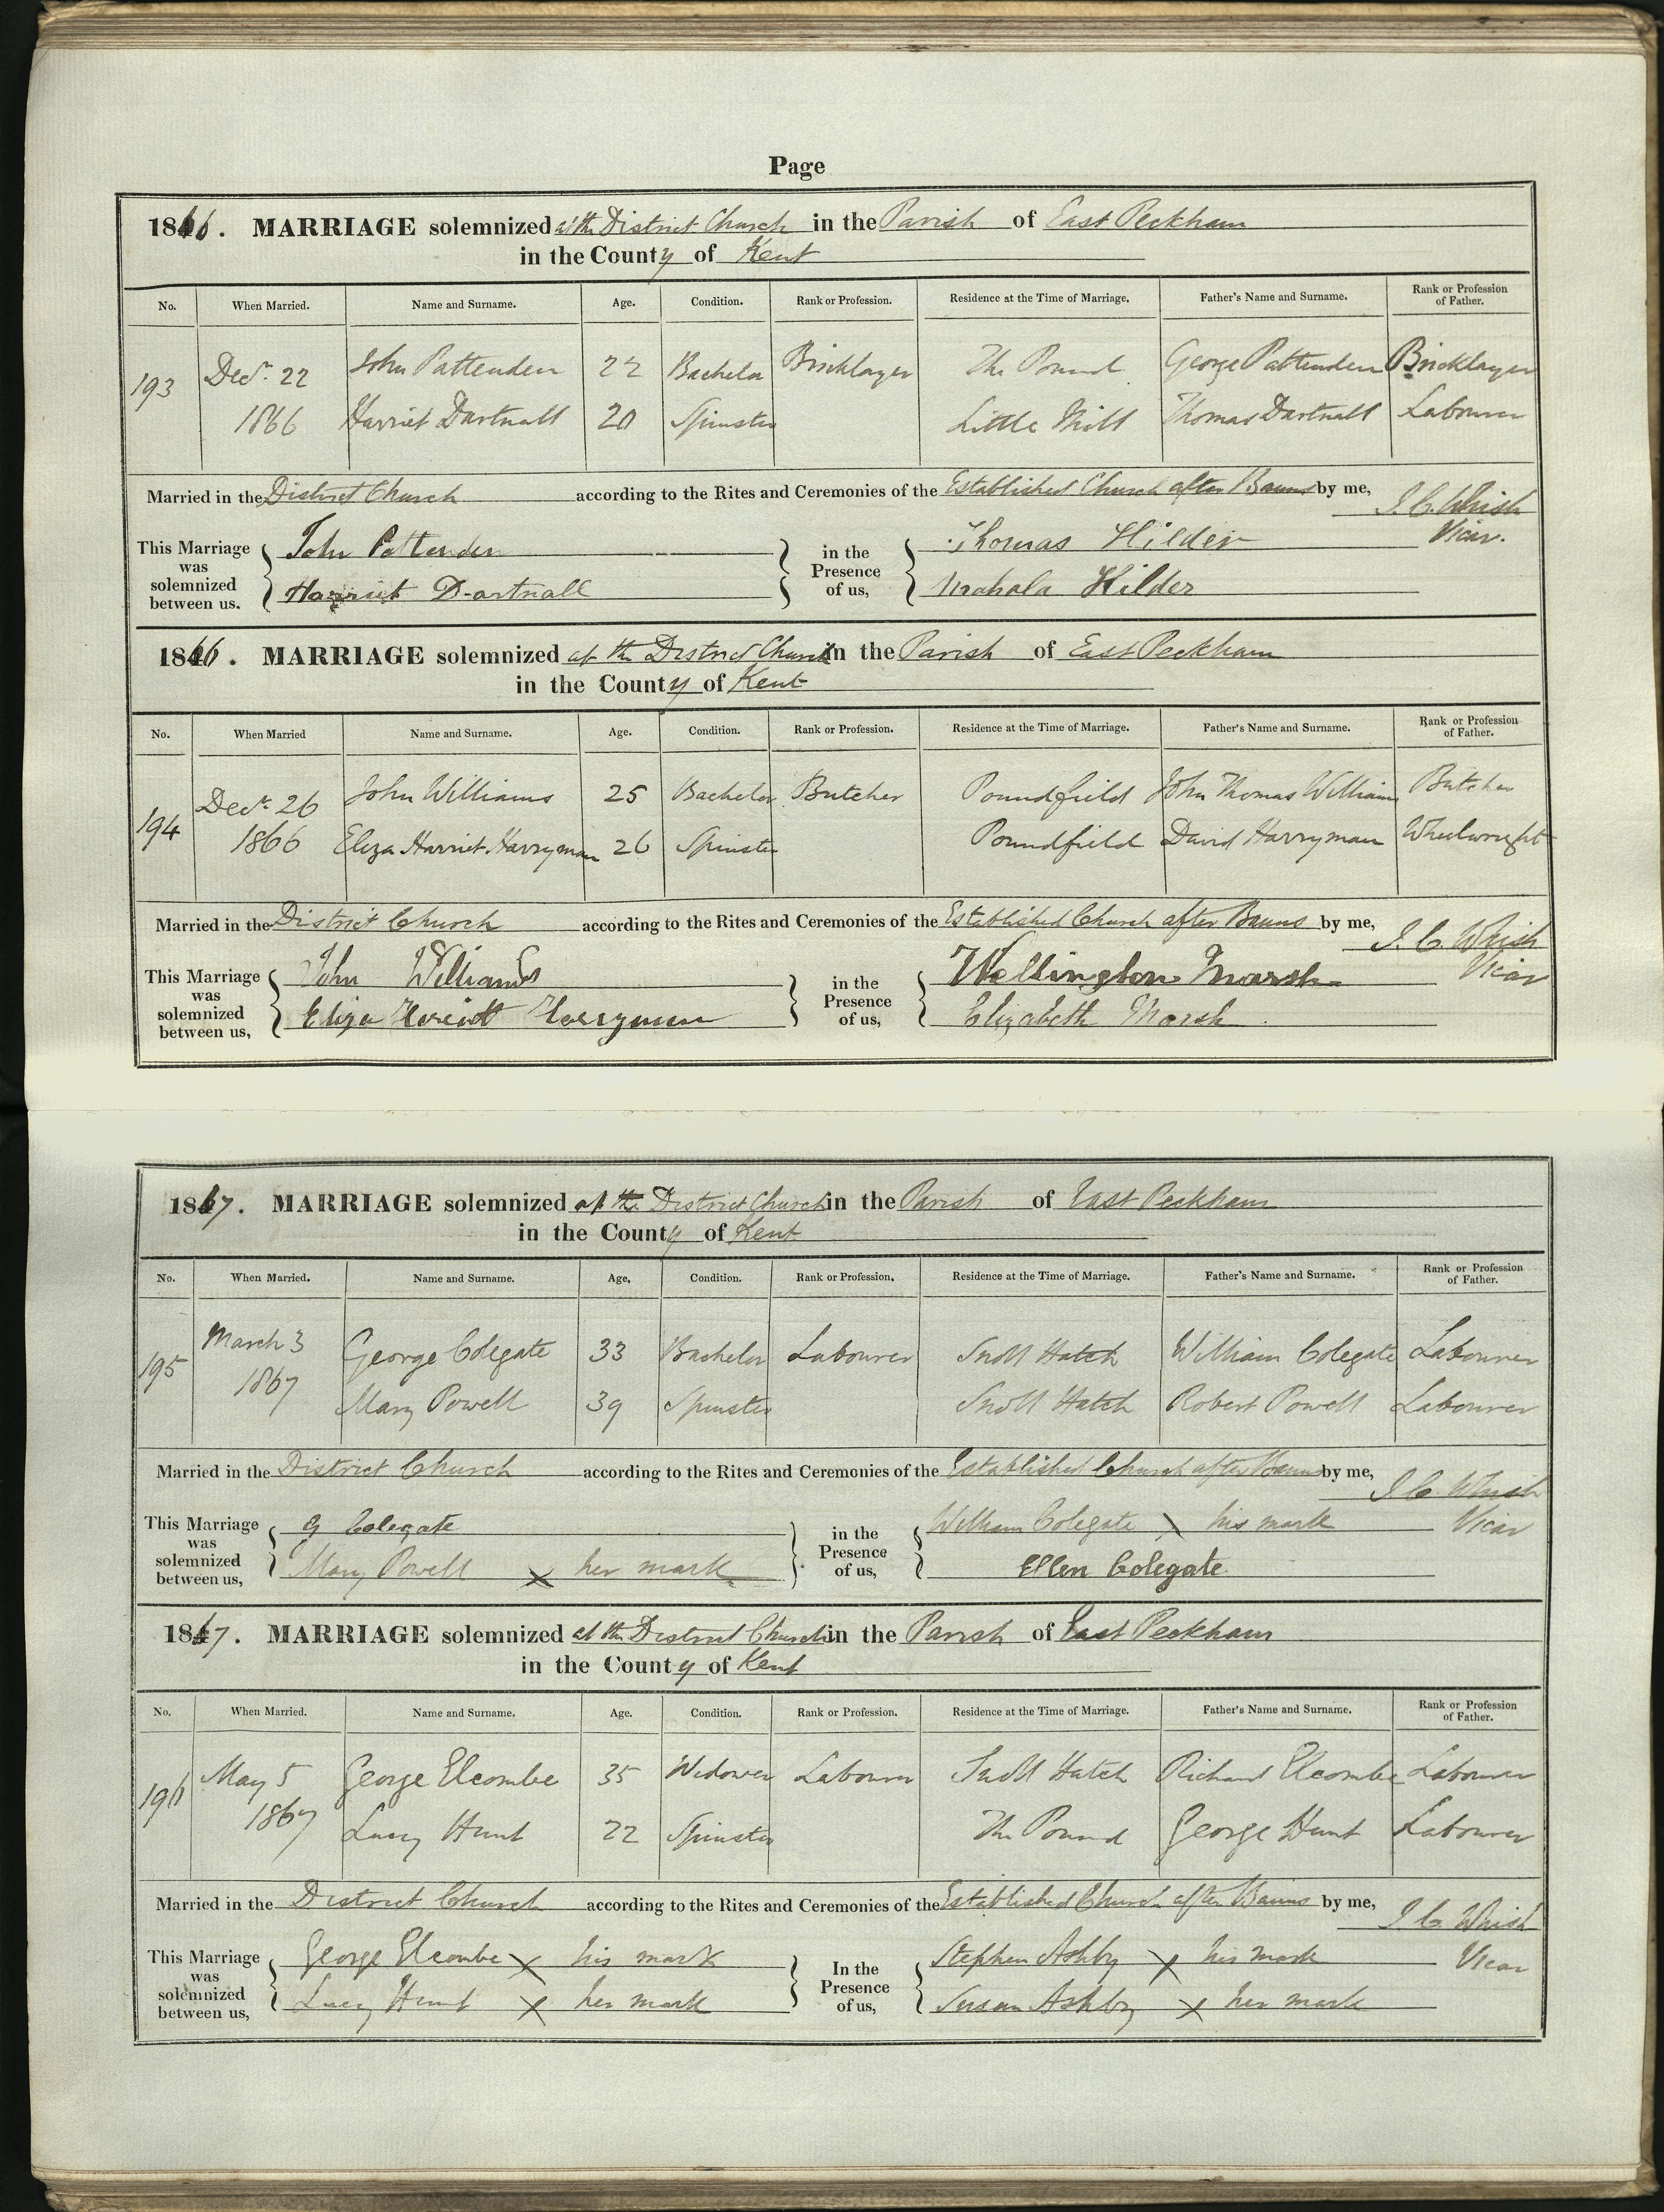 Page
1866. MARRIAGE solemnized at the District Church in the Parish of East Peckham
in the County of Kent
No. When Married. Name and Surname. Age. Condition. Rank or Profession. Residence at the Time of Marriage. Father's Name and Surname. Rank or Profession of Father.
193 Decr. 22 John Pattenden 22 Bachelor Bricklayer The Pound George Pattenden Bricklayer
1866 Harriet Dartnall 20 Spinster Little Mill Thomas Dartnall Labourer
Married in the District Church according to the Rites and Ceremonies of the Established Church after Banns by me, J. C. Whish
Vicar.
This Marriage was solemnized between us. John Pattenden in the Presence of us, Thomas Hilder
Harriet Dartnall Mahala Hilder
1866. MARRIAGE solemnized at the District Church in the Parish of East Peckham
in the County of Kent
No. When Married Name and Surname. Age. Condition. Rank or Profession. Residence at the Time of Marriage. Father's Name and Surname. Rank or Profession of Father.
194 Decr. 26 John Williams 25 Bachelor Butcher Poundfield John Thomas Williams Butcher
1866 Eliza Harriet Harryman 26 Spinster Poundfield David Harryman Wheelwright
Married in the District Church according to the Rites and Ceremonies of the Established Church after Banns by me, J. C. Whish
Vicar
This Marriage was solemnized between us, John Williams in the Presence of us, Wellington Marsh
Eliza Harryman Elizabeth Marsh
1867. MARRIAGE solemnized at the District Church in the Parish of East Peckham
in the County of Kent
No. When Married. Name and Surname. Age, Condition. Rank or Profession. Residence at the Time of Marriage. Father's Name and Surname. Rank or Profession of Father.
195 March 3 George Colegate 33 Bachelor Labourer Snoll Hatch William Colegate Labourer
1867 Mary Powell 39 Spinster Snoll Hatch Robert Powell Labourer
Married in the District Church according to the Rites and Ceremonies of the Established Church after Banns by me, J. C. Whish
Vicar
This Marriage was solemnized between us, G Colegate in the Presence of us, William Colegate X his mark
Mary Powell X her mark Ellen Colegate
1867. MARRIAGE solemnized at the District Church in the Parish of East Peckham
in the County of Kent
No. When Married. Name and Surname. Age. Condition. Rank or Profession. Residence at the Time of Marriage. Father's Name and Surname. Rank or Profession of Father.
196 May 5 George Elcombe 35 Widower Labourer Snoll Hatch Richard Elcombe Labourer
1867 Lucy Hunt 22 Spinster The Pound George Hunt Labourer
Married in the District Church according to the Rites and Ceremonies of the Established Church after Banns by me, J. C. Whish
Vicar
This Marriage was solemnized between us, George Elcombe X his mark In the Presence of us, Stephen Ashby X his mark
Lucy Hunt X her mark Susan Ashby X her mark